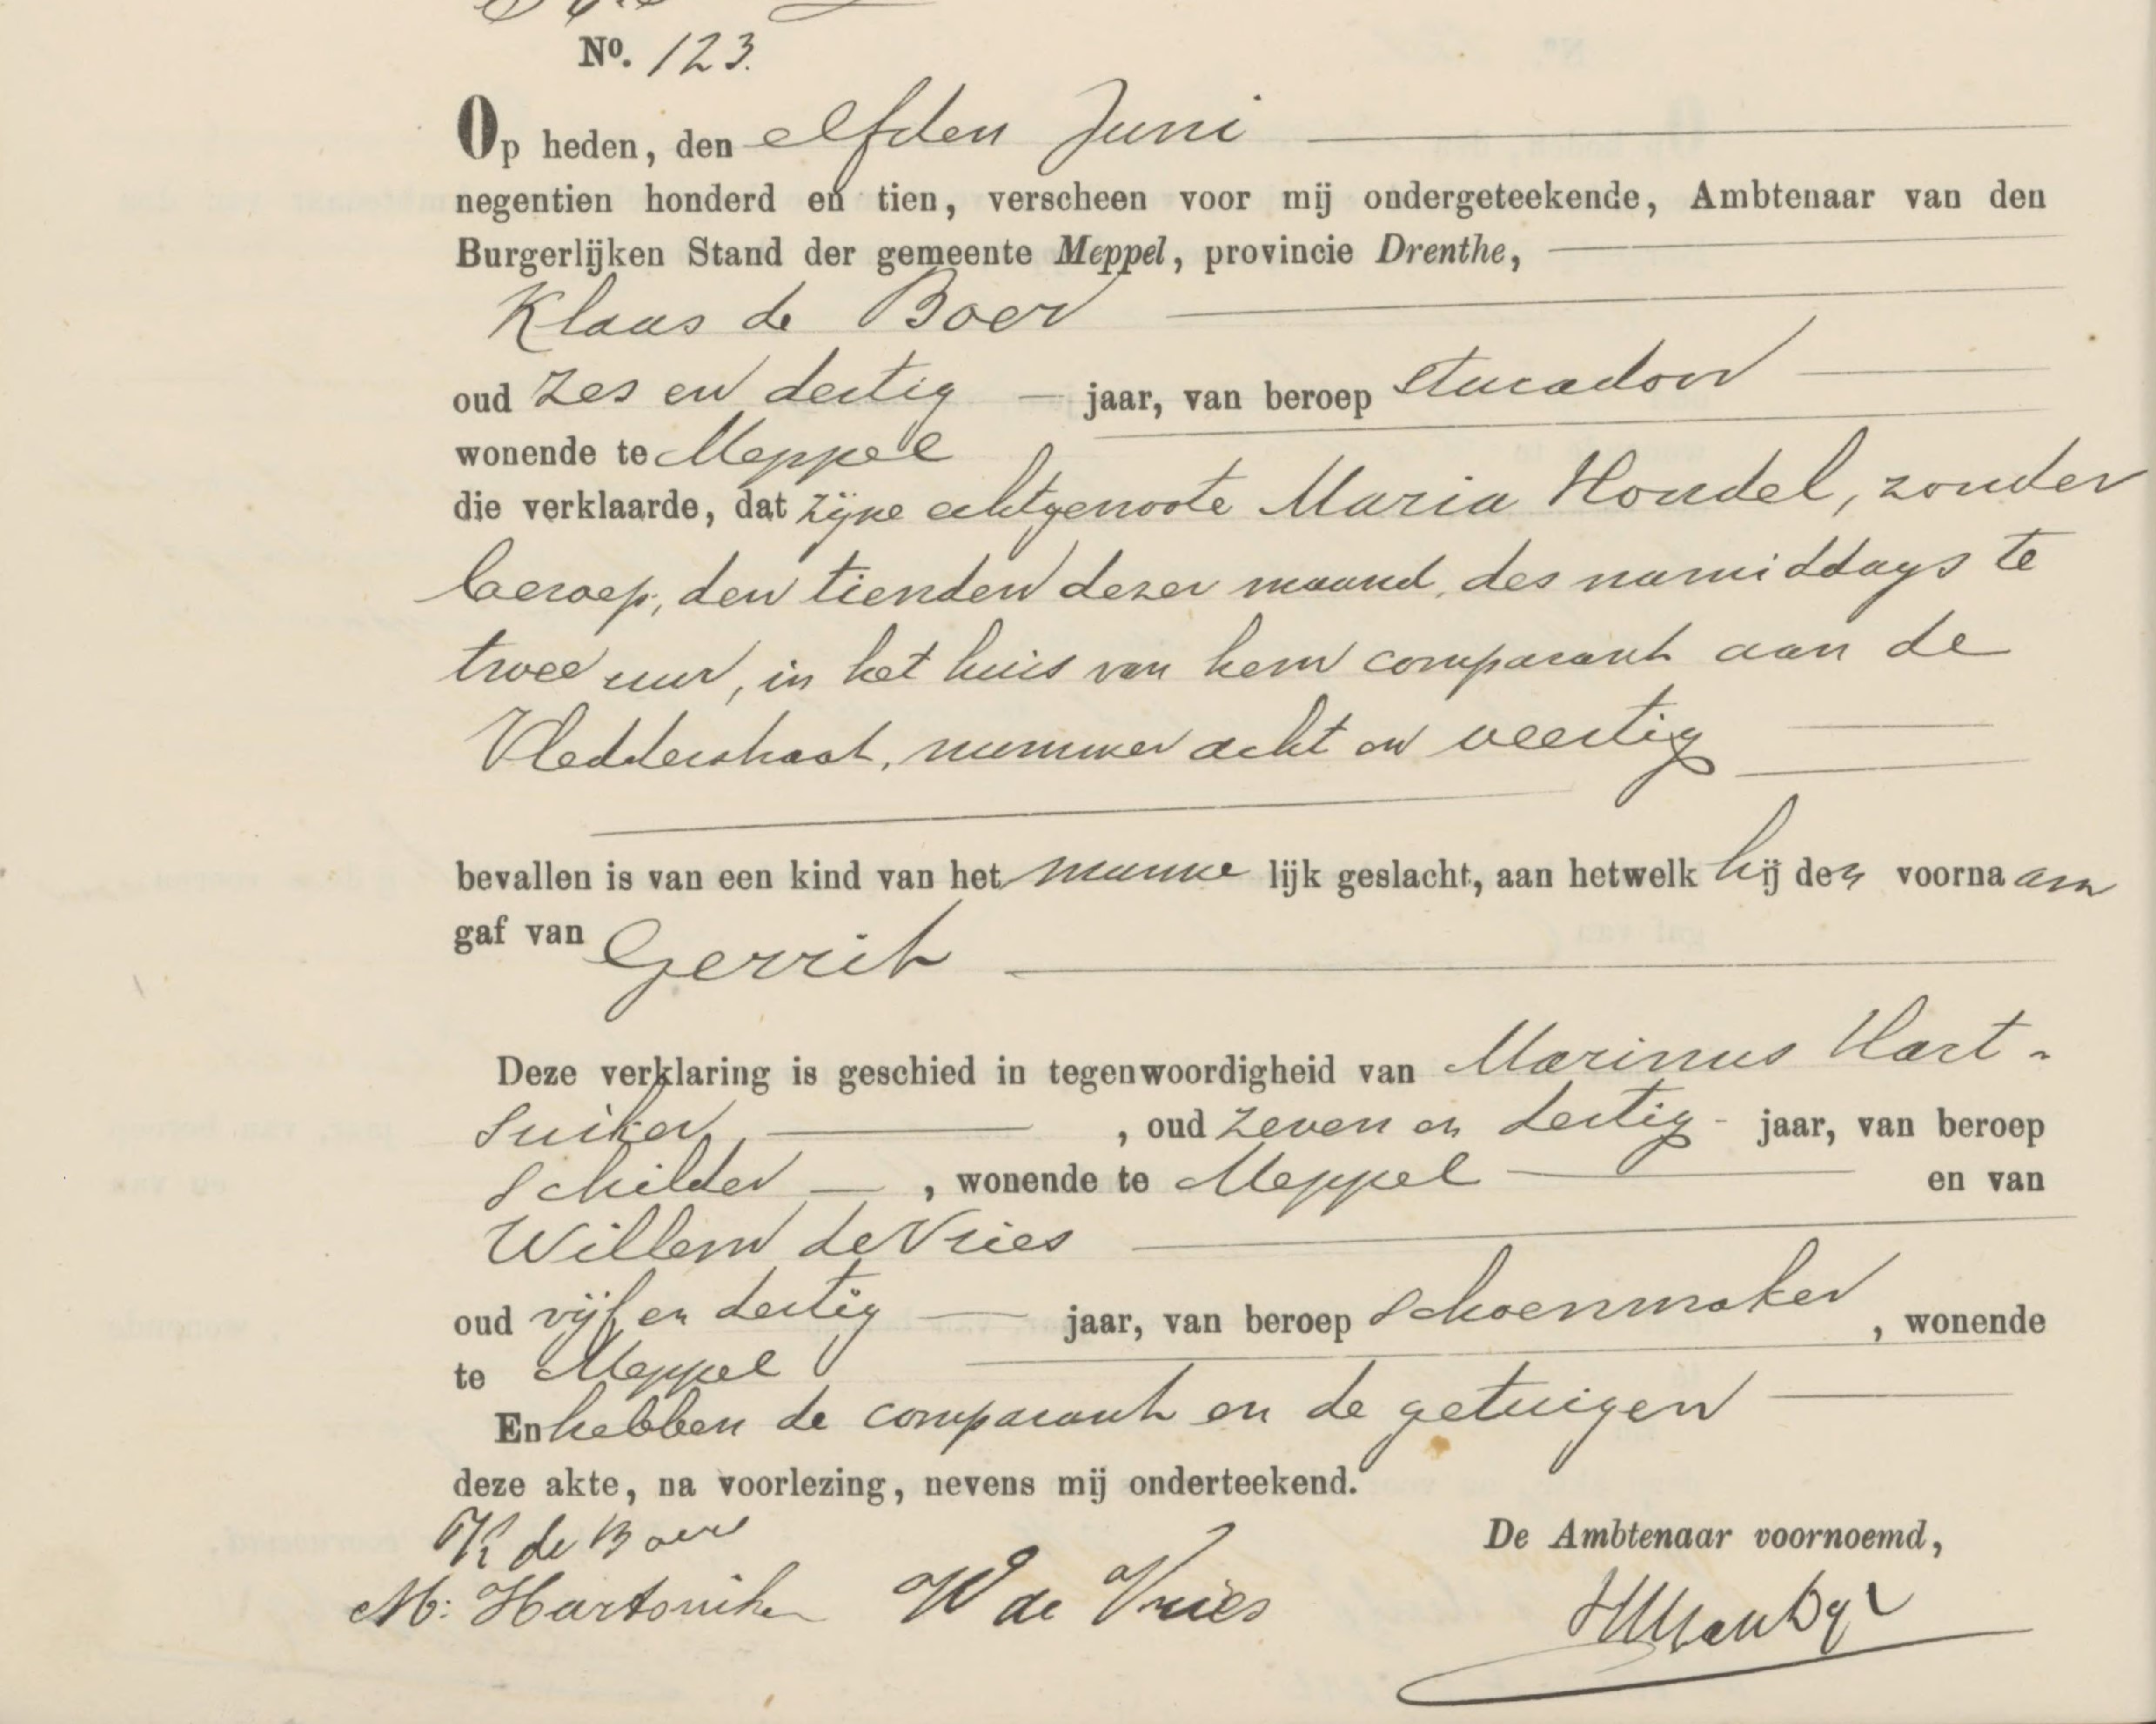 No. 123.
Op heden, den elfden Juni
negentien honderd en tien, verscheen voor mij ondergeteekende, Ambtenaar van den
Burgerlijken Stand der gemeente Meppel, provincie Drenthe,
Klaas de Boer
oud zes en dertig jaar, van beroep stucadoor
wonende te Meppel
die verklaarde, dat zijne echtgenoote Maria Hondel, zonder
beroep, den tienden dezer maand, des namiddags te
twee uur, in het huis van hem comparant aan de
Vledderstraat, nummer acht en veertig
bevallen is van een kind van het manne lijk geslacht, aan hetwelk hij den voornaam
gaf van Gerrit
Deze verklaring is geschied in tegenwoordigheid van Marinus Hart-
suiker, , oud zeven en dertig jaar, van beroep
schilder , wonende te Meppel en van
Willem de Vries
oud vijf en dertig jaar, van beroep schoenmaker , wonende
te Meppel
En hebben de comparant en de getuigen
deze akte, na voorlezing, nevens mij onderteekend.
K de Boer
De Ambtenaar voornoemd,
M: Hartsuiker W de Vries